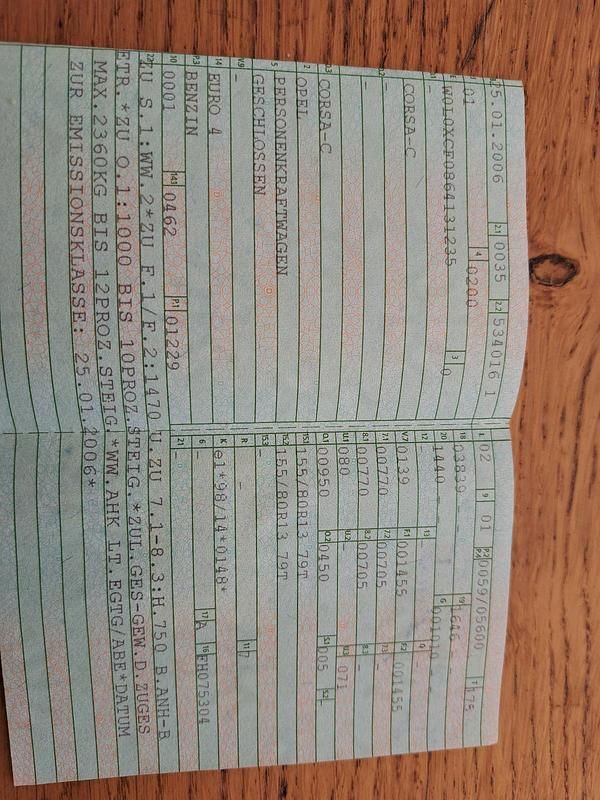 25.01.2006 2.1 0035 2.2 534016 1
01 4 0200
W0L0XCF0864131235 3 0
-
CORSA-C
-
-
D.3 CORSA-C
2 OPEL
5 PERSONENKRAFTWAGEN
GESCHLOSSEN
V.9 -
14 EURO 4
P.3 BENZIN
10 0001 14.1 0462 P.1 01229
L 02 9 01 P.2 P.4 0059/05600 T 175
18 03839 - 19 1646 -
20 1440 - G 001010 -
12 - 13 - Q -
V.7 0139 F.1 001455 F.2 001455
7.1 00770 7.2 00705 7.3 -
8.1 00770 8.2 00705 8.3 -
U.1 080 U.2 - U.3 071
O.1 00950 O.2 0450 S.1 005 S.2 -
15.1 155/80R13 79T
15.2 155/80R13 79T
15.3 -
R - 11 7
K e1*98/14*0148*
6 - 17 A 16 FH075304
21
22 ZU S.1:WW.2*ZU F.1/F.2:1470 U.ZU 7.1-8.3:H.750 B.ANH-B
ETR.*ZU O.1:1000 BIS 10PROZ.STEIG.*ZUL.GES-GEW.D.ZUGES
MAX.2360KG BIS 12PROZ.STEIG.*WW.AHK LT.EGTG/ABE*DATUM
ZUR EMISSIONSKLASSE: 25.01.2006*